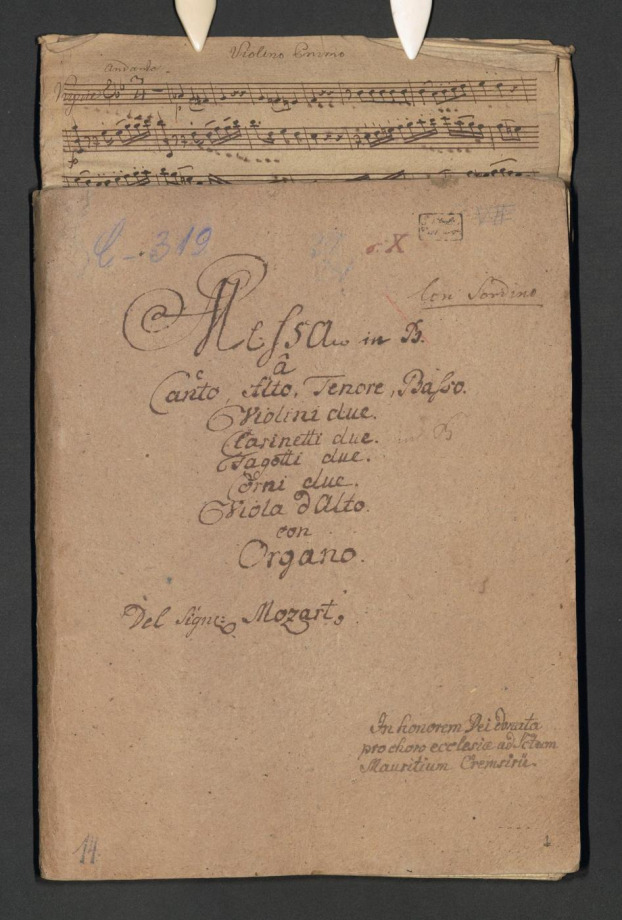 Violino Primo
Andante
Kyrie
C - 319
X
Con Sordino
Messa in B.
â
Canto, Alto, Tenore, Basso.
Violini due.
Clarinetti due.
Fagotti due.
Corni due.
Viola d'Alto.
con
Organo.
Del Sign: Mozart.
In honorem Dei donata
pro choro ecclesiæ ad Sctum
Mauritium Cremsirii.
14.